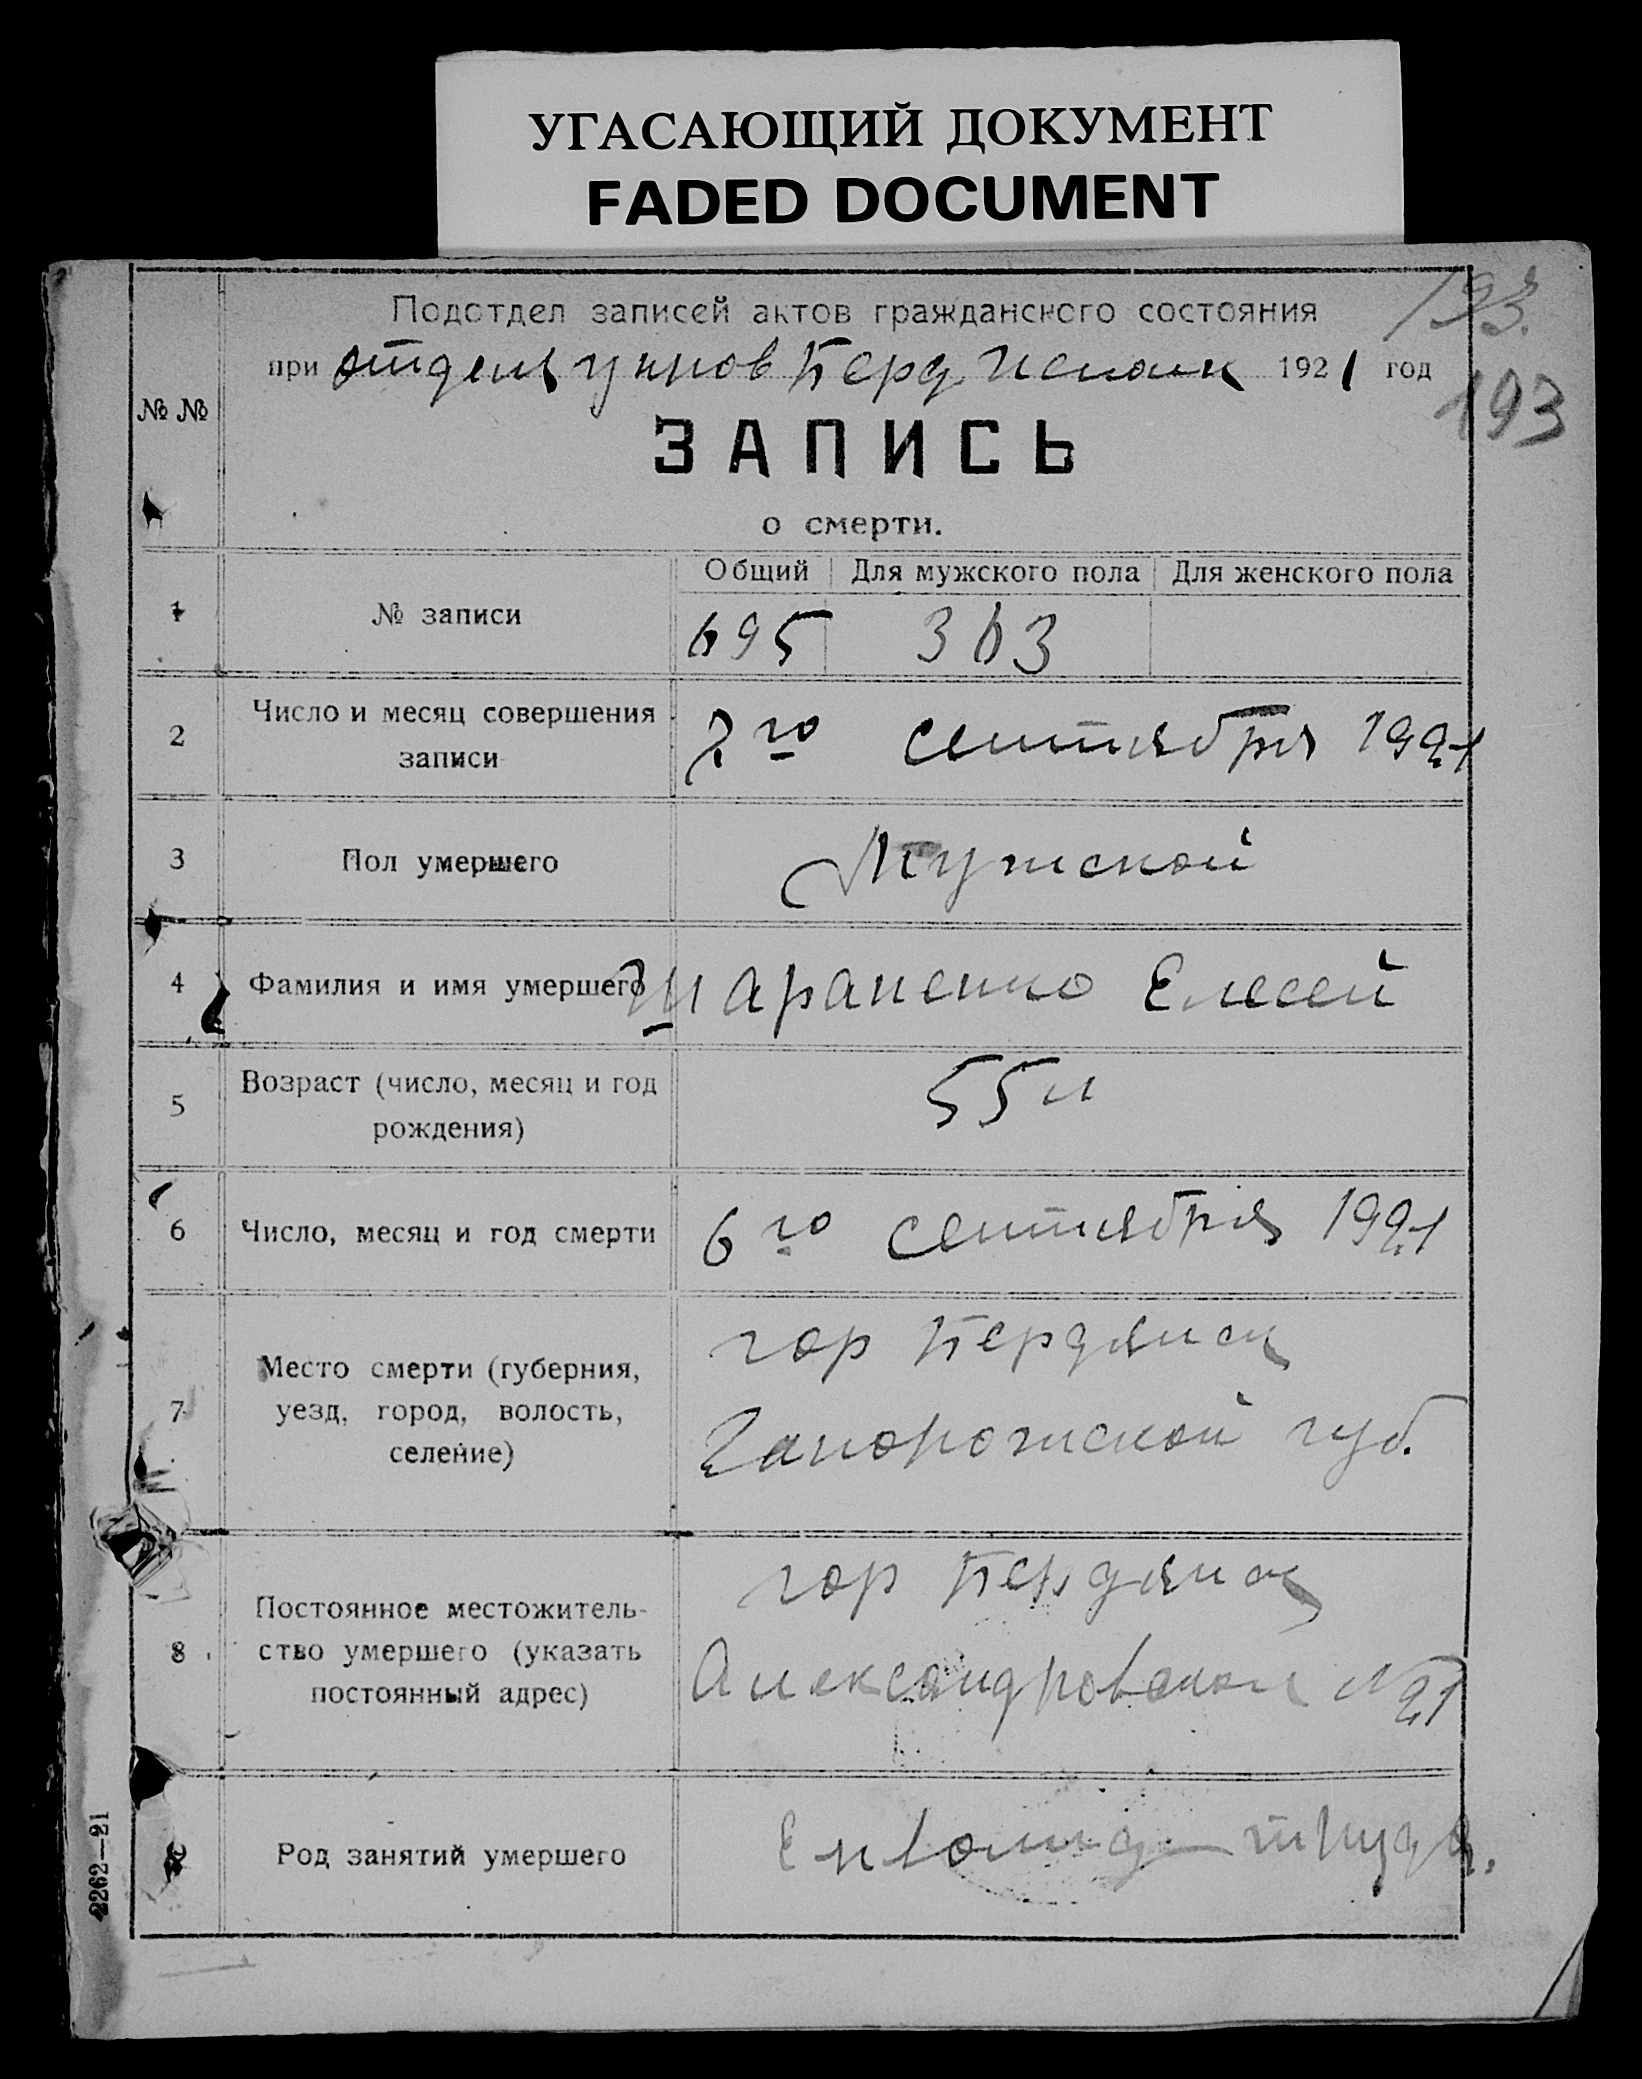 УГАСАЮЩИЙ ДОКУМЕНТ
FADED DOCUMENT
193
Подотдел записей актов гражданского состояния
при отделе Бердянском 1921 год
193
№ №
ЗАПИСЬ
о смерти.
Общий Для мужского пола Для женского пола
1 № записи 695 363
2 Число и месяц совершения
записи
7го сентября 1921
3 Пол умершего Мужской
4 Фамилия и имя умершего Тараненко Елесей
5 Возраст (число, месяц и год
рождения)
55 л
6 Число, месяц и год смерти 6го сентября 1921
7 Место смерти (губерния,
уезд, город, волость,
селение)
гор Бердянск
Запорожской губ.
8 Постоянное местожитель-
ство умершего (указать
постоянный адрес)
гор Бердянск
Александровская № 21
Род занятий умершего труда.
2262—21